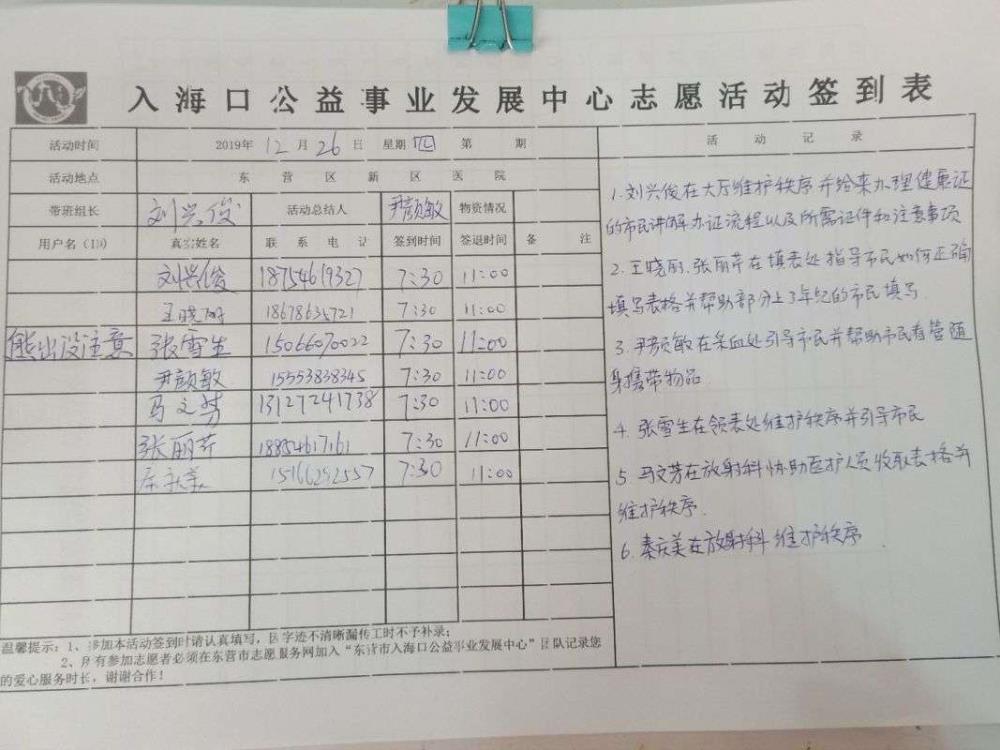 入海口公益事业发展中心志愿活动签到表
活动时间 2019年 12 月 26 日 星期 四 第 期
活动地点 东营区新区医院
带班组长 刘兴俊 活动总结人 尹颜敏 物资情况
用户名(ID) 真实姓名 联系电话 签到时间 签退时间 备注
刘兴俊 18754619327 7:30 11:00
王晓丽 18678635721 7:30 11:00
熊出没注意 张雪生 15066070022 7:30 11:00
尹颜敏 15553838345 7:30 11:00
马文芳 13127241738 7:30 11:00
张丽芹 18854617161 7:30 11:00
秦庆美 15166292557 7:30 11:00
温馨提示:1、参加本活动签到时请认真填写,因字迹不清晰漏传工时不予补录;
2、所有参加志愿者必须在东营市志愿服务网加入“东营市入海口公益事业发展中心”团队记录您
的爱心服务时长,谢谢合作!
活动记录
1.刘兴俊在大厅维护秩序并给来办理健康证
的市民讲解办证流程以及所需证件和注意事项
2.王晓丽.张丽芹在填表处指导市民如何正确
填写表格并帮助部分上了年纪的市民填写.
3.尹颜敏在采血处引导市民并帮助市民看管随
身携带物品
4.张雪生在领表处维护秩序并引导市民
5.马文芳在放射科协助医护人员收取表格并
维护秩序.
6.秦庆美在放射科维护秩序